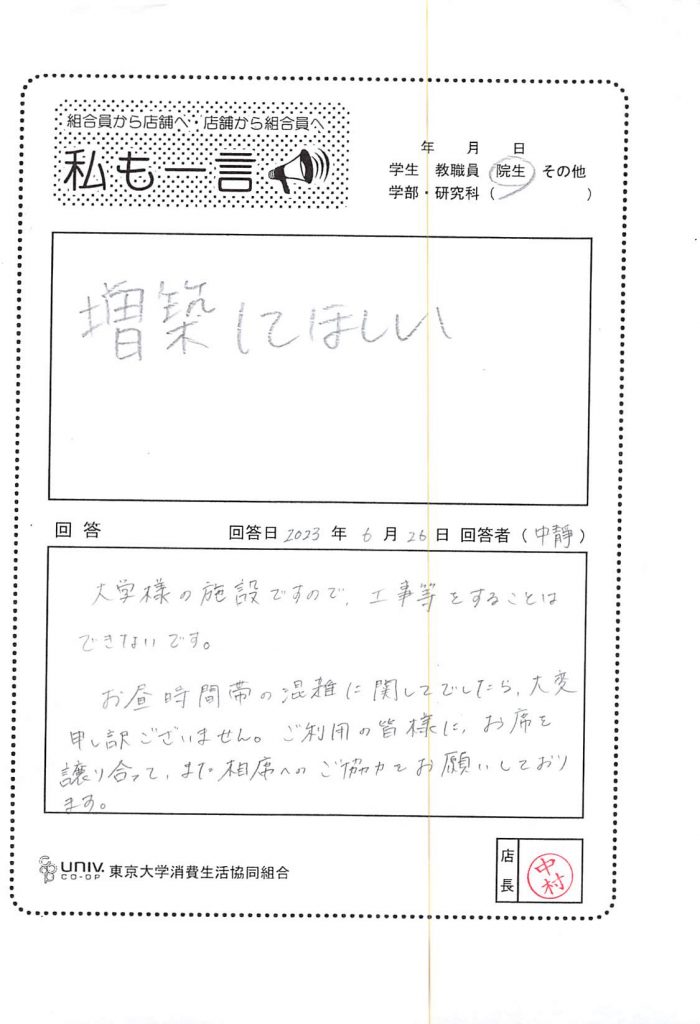 組合員から店舗へ 店舗から組合員へ
私も一言
年 月 日
学生 教職員 院生 その他
学部・研究科 ( )
増築してほしい
回答 回答日 2023 年 6 月 26 日 回答者 ( 中静 )
大学様の施設ですので、工事等をすることは
できないです。
お昼時間帯の混雑に関してでしたら、大変
申し訳ございません。ご利用の皆様に、お席を
譲り合って、また相席へのご協力をお願いしており
ます。
UNIV. CO-OP 東京大学消費生活協同組合
店長 中村